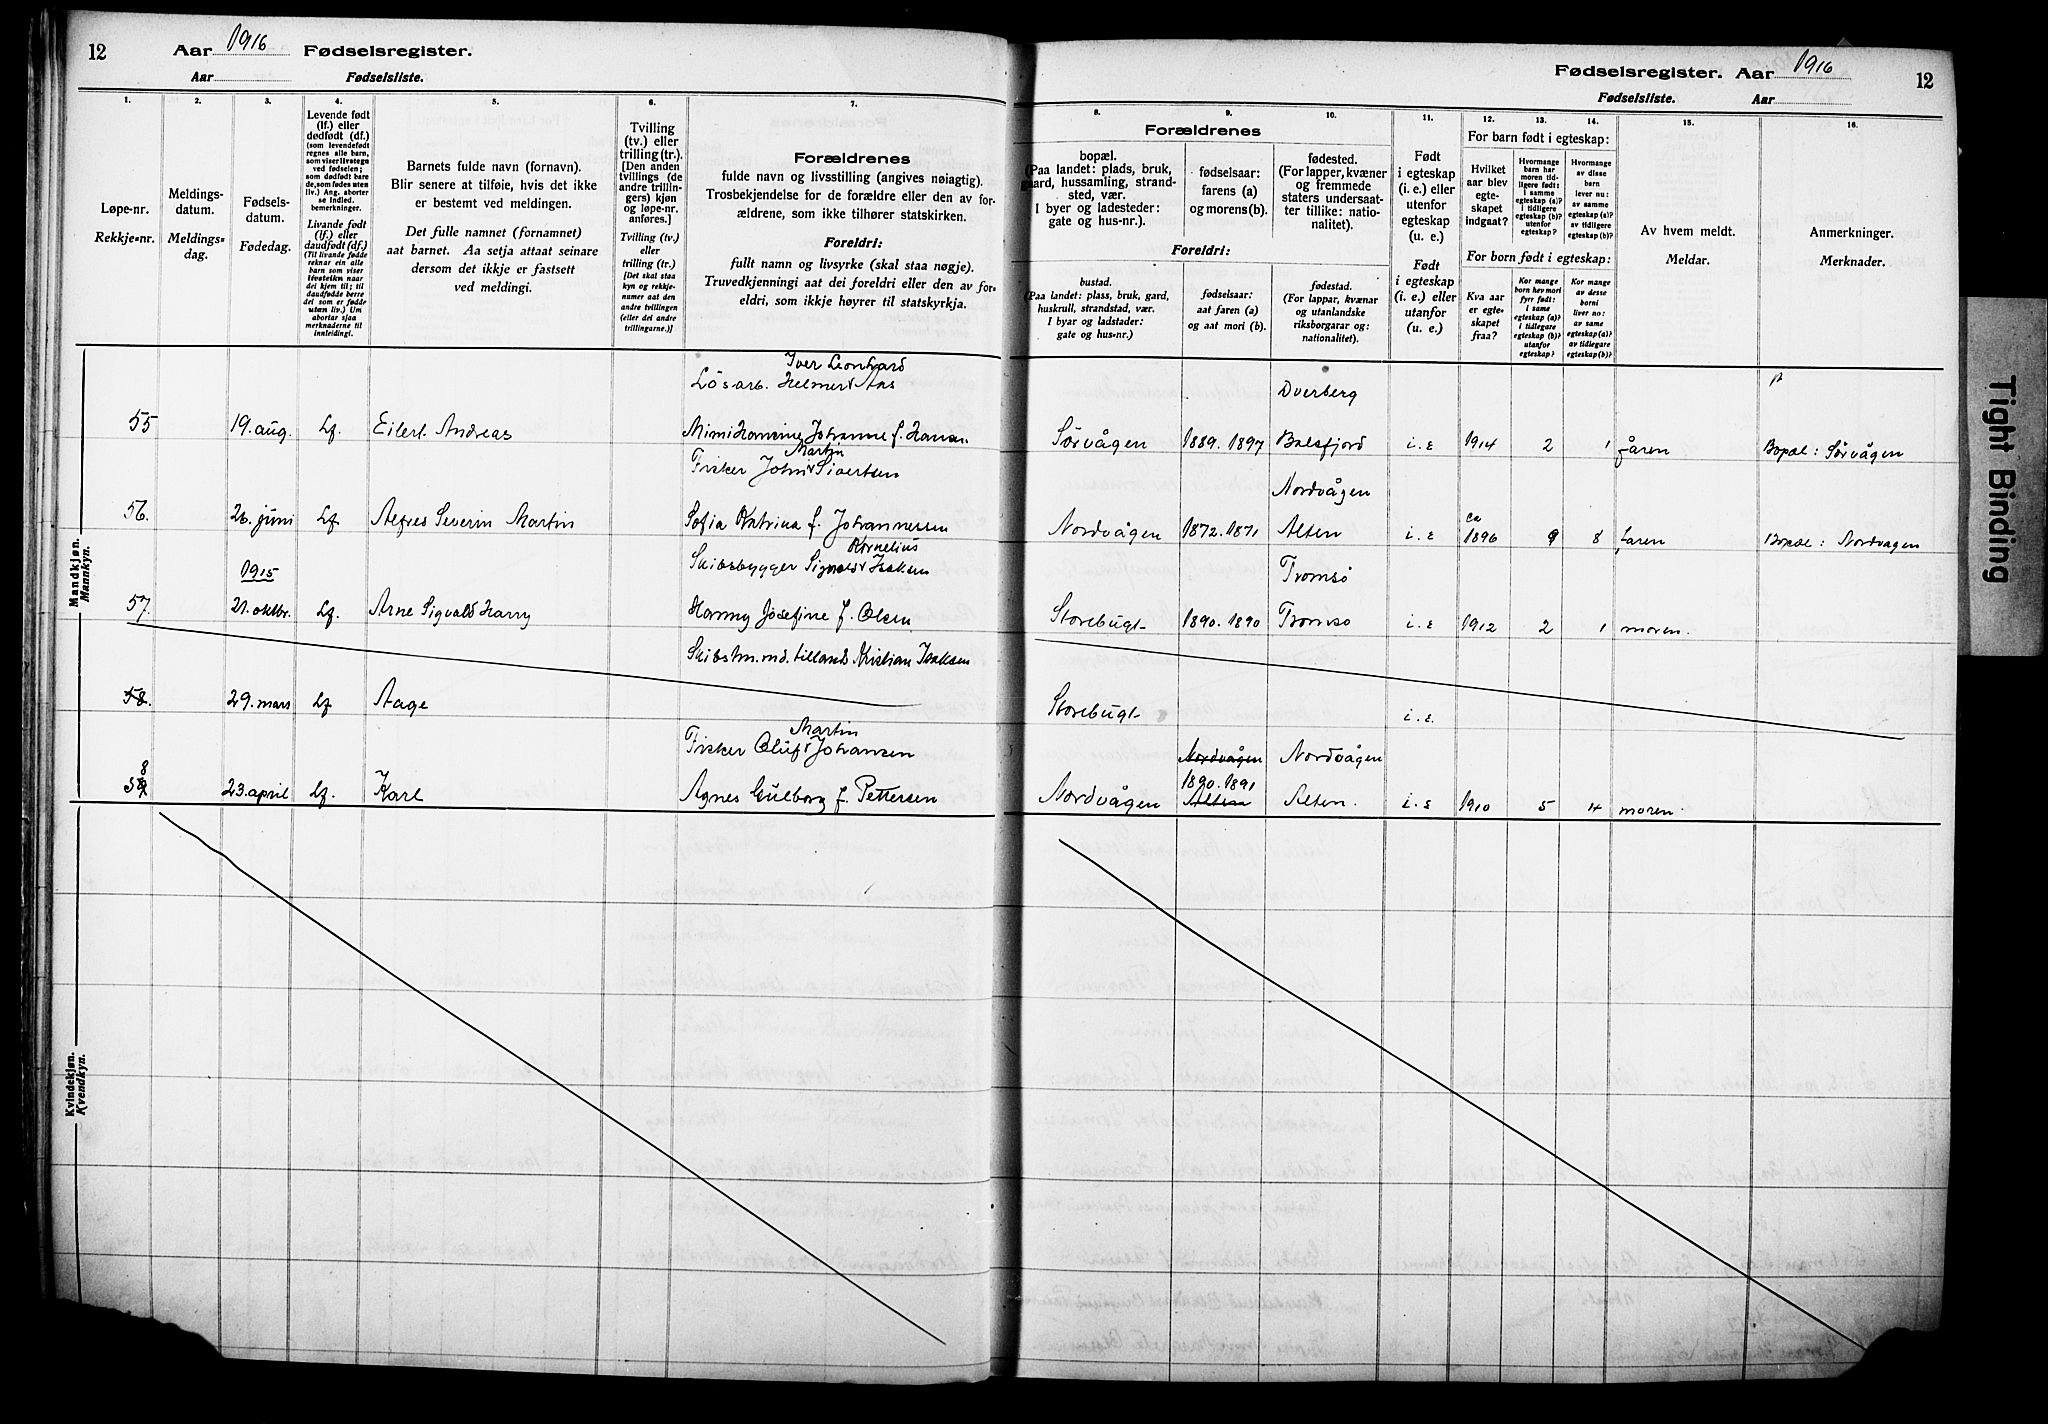 12 Aar 1916 Fødselsregister.
Aar Fødselsliste.
1.
Løpe-nr.
Rekkje-nr.
2.
Meldings-
datum.
Meldings-
dag.
3.
Fødsels-
datum.
Fødedag.
4.
Levende født
(lf.) eller
dødfødt (df.)
(som levendefødt
regnes alle barn,
som viser livstegn
ved fødselen;
som dødfødt bare
de, som fødes uten
liv.) Ang. aborter
se indled.
bemerkninger.
Livande født
(lf.) eller
daudfødt (df.)
(Til livande fødde
reknar ein alle
barn som viser
livsteikn naar
dei kjem til; til
daudfødde berre
dei som er fødde
utan liv.) Um
abortar sjaa
merknaderne til
innleidingi.
5.
Barnets fulde navn (fornavn).
Blir senere at tilføie, hvis det ikke
er bestemt ved meldingen.
Det fulle namnet (fornamnet)
aat barnet. Aa setja attaat seinare
dersom det ikkje er fastsett
ved meldingi.
6.
Tvilling
(tv.) eller
trilling (tr.).
[Den anden
tvillings (de
andre trillin-
gers) kjøn
og løpe-nr.
anføres.]
Tvilling (tv.)
eller
trilling (tr.)
[Det skal staa
kyn og rekkje-
numer aat den
andre tvillingen
(eller dei andre
trillingarne.)]
7.
Forældrenes
fulde navn og livsstilling (angives nøiagtig).
Trosbekjendelse for de forældre eller den av for-
ældrene, som ikke tilhører statskirken.
Foreldri:
fullt namn og livsyrke (skal staa nøgje).
Truvedkjenningi aat dei foreldri eller den av for-
eldri, som ikkje høyrer til statskyrkja.
Mandkjøn.
Mannkyn.
Iver Leonhard
Løsarb. Helmer Aas
55 19. aug. Lf. Eilert Andreas Mimi Hansine Johanne f. Hansen
Martin
Fisker John Sivertsen
56. 26. juni Lf. Alfred Severin Martin Sofia Katrina f. Johannessen
Kornelius
1915 Skibsbygger Sigvald Isaksen
57. 21. oktbr. Lf. Arne Sigvald Harry Hanny Josefine f. Olsen
Skibstm.md. tillands Kristian Isaksen
58. 29. mars Lf Aage
Martin
Fisker Oluf Johansen
8
59 23. april Lf. Karl Agnes Gulborg f. Pettersen
Kvindekjøn.
Kvendkyn.
Fødselsregister. Aar 1916 12
Fødselsliste. Aar
Forældrenes
8.
bopæl.
(Paa landet: plads, bruk,
gaard, hussamling, strand-
sted, vær.
I byer og ladesteder:
gate og hus-nr.).
9.
fødselsaar:
farens (a)
og morens (b).
10.
fødested.
(For lapper, kvæner
og fremmede
staters undersaat-
ter tillike: natio-
nalitet).
Foreldri:
bustad.
(Paa landet: plass, bruk, gard,
huskrull, strandstad, vær.
I byar og ladstader:
gate og hus-nr.)
fødselsaar:
aat faren (a)
og aat mori (b).
fødestad.
(For lappar, kvænar
og utanlandske
riksborgarar og:
nationalitet).
11.
Født
i egteskap
(i. e.) eller
utenfor
egteskap
(u. e.)
Født
i egteskap
(i. e.) eller
utanfor
(u. e.)
For barn født i egteskap:
12.
Hvilket
aar blev
egte-
skapet
indgaat?
13.
Hvormange
barn har
moren tid-
ligere født:
i samme
egteskap (a)?
i tidligere
egteskap (b)?
utenfor
egteskap?
14.
Hvormange
av disse
barn
lever nu:
av samme
egteskap (a)?
av tidligere
egteskap (b)?
For born født i egteskap:
Kva aar
er egte-
skapet
fraa?
Kor mange
born hev mori
fyrr født:
i same
egteskap (a)?
i tidlegare
egteskap (b)?
utanfor
egteskap?
Kor mange
av desse
borni
liver no:
av same
egteskap (a)?
av tidlegare
egteskap (b)?
15.
Av hvem meldt.
Meldar.
16.
Anmerkninger.
Merknader.
Dverberg
Sørvågen 1889. 1897 Balsfjord i. e 1914 2 1 faren Bopæl: Sørvågen
Nordvågen
ca
Nordvågen 1872. 1871 Alten i. e 1896 9 8 faren Bopæl: Nordvagen
Tromsø
Storebugt 1890. 1890 Tromsø i. e 1912 2 1 moren.
Storebugt i. e.
Nordvågen Nordvågen
1890. 1891
Nordvågen Alten Alten. i. e 1910 5 4 moren.
Tight Binding